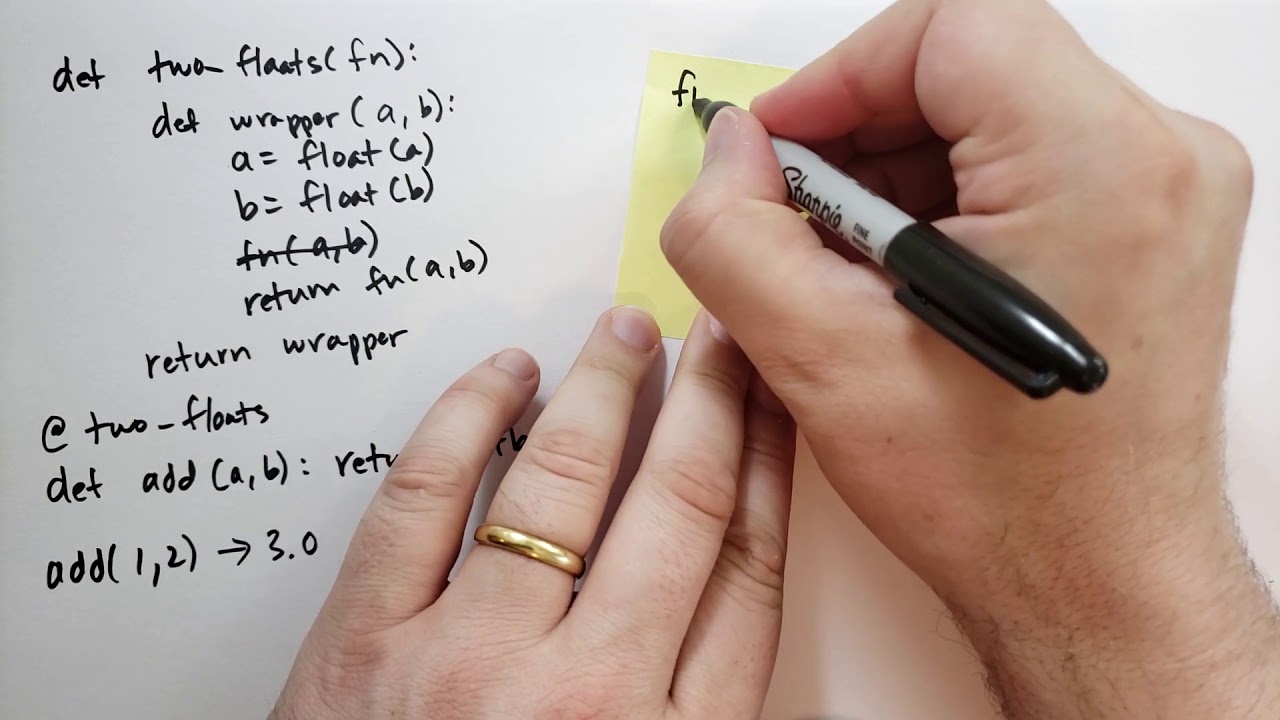 def two_floats(fn):
def wrapper(a,b):
a = float(a)
b = float(b)
fn(a,b)
return fn(a,b)
return wrapper
@two_floats
def add(a,b):
add(1,2) → 3.0
Sharpie
FINE
POINT